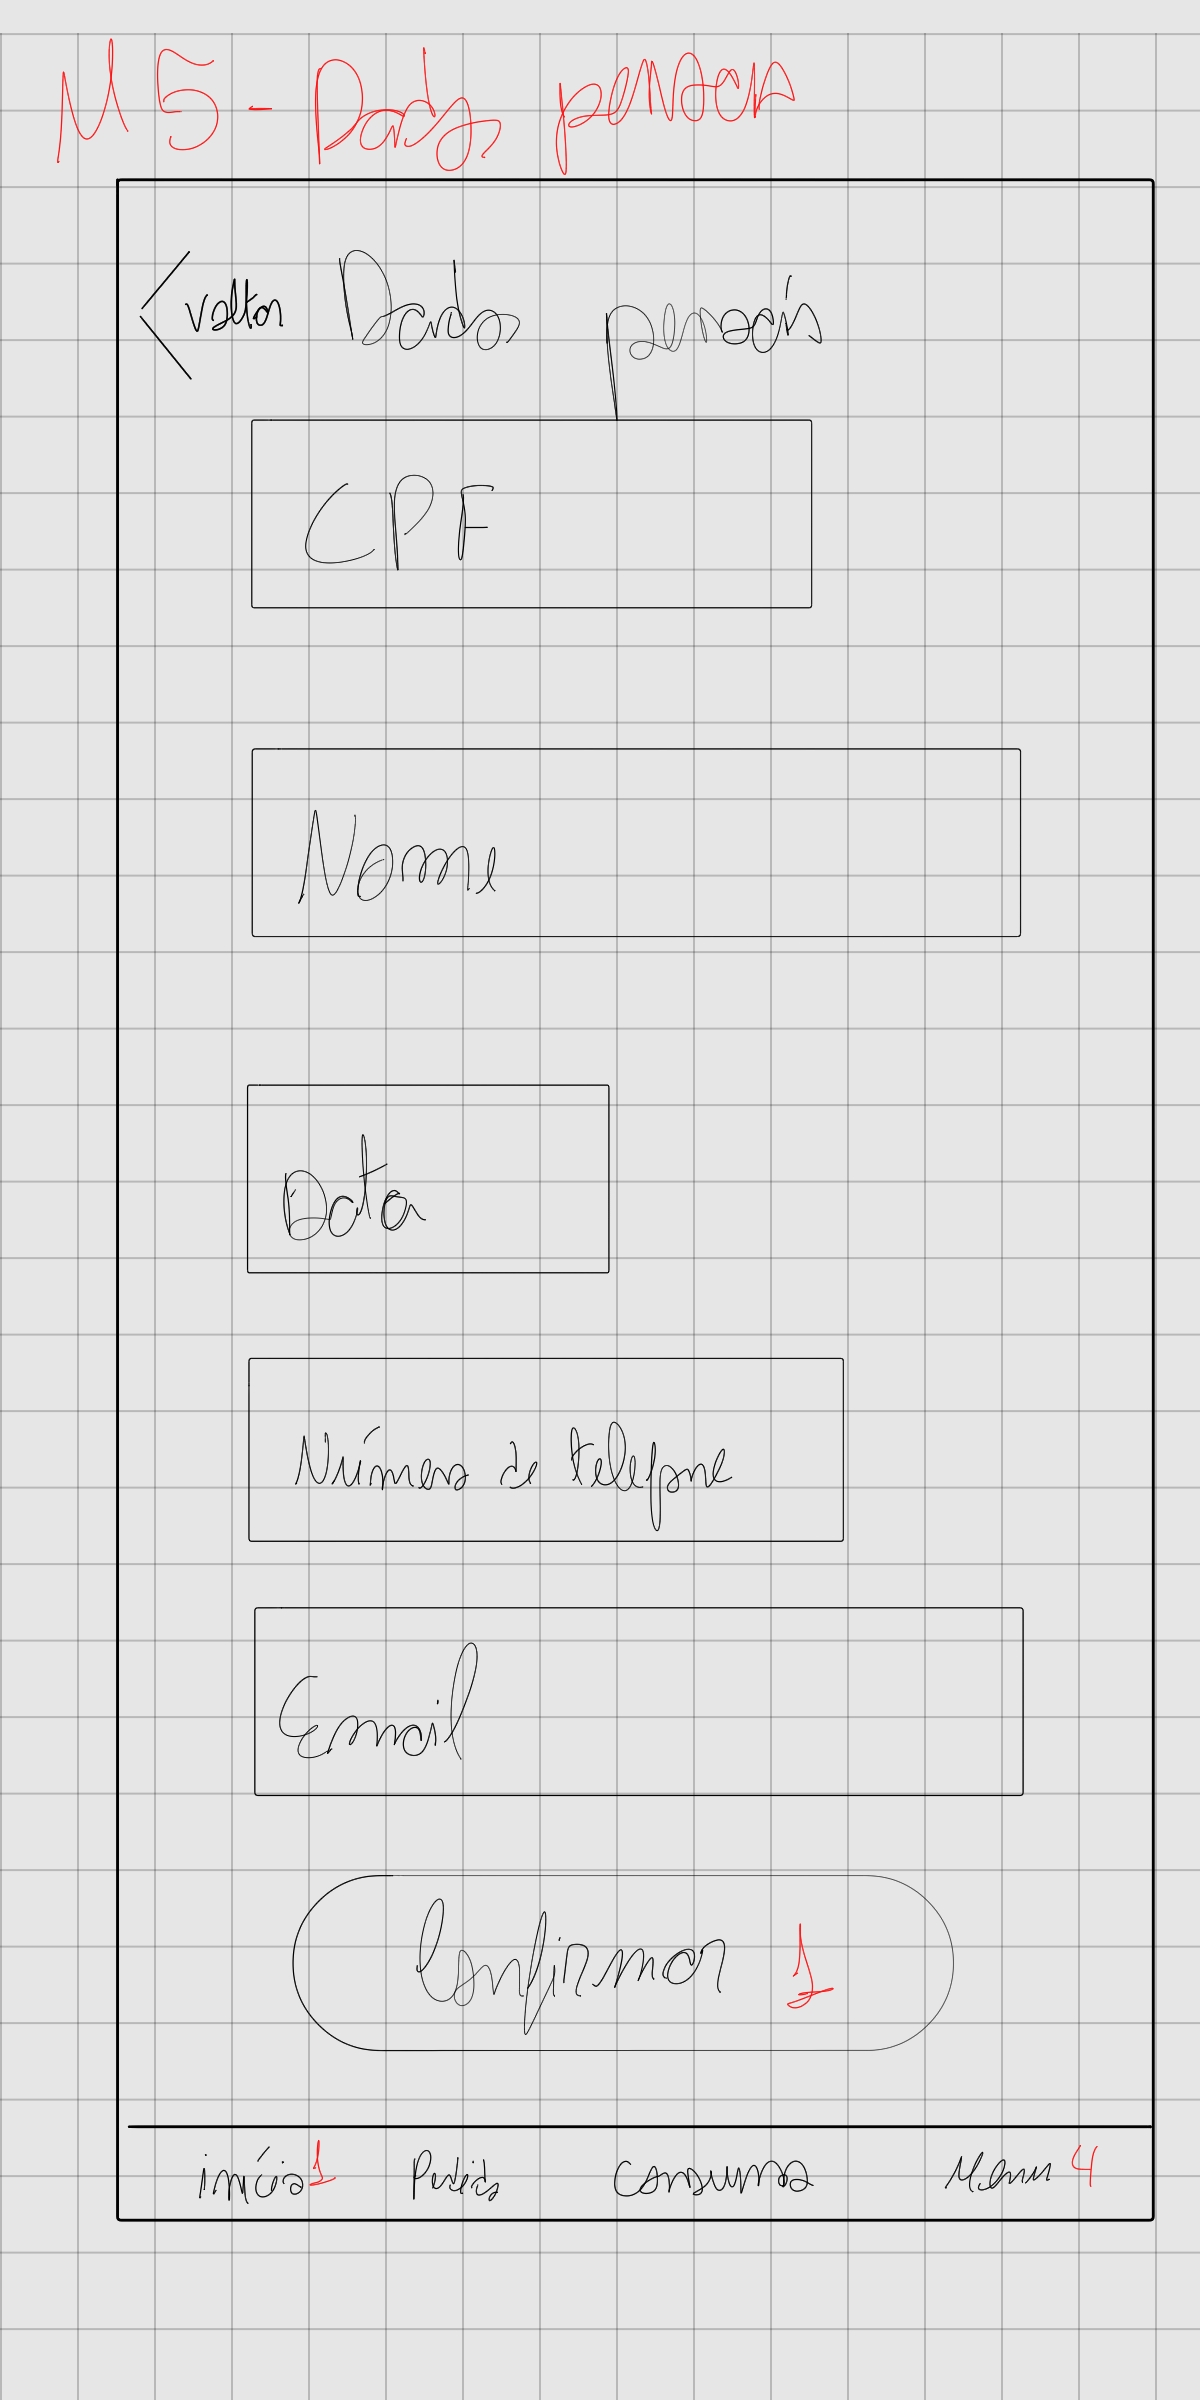 M 5 - Dados pessoais
< voltar Dados pessoais
CPF
Nome
Data
Número de telefone
Email
Confirmar 1
início 1 Pedido Consumo Menu 4